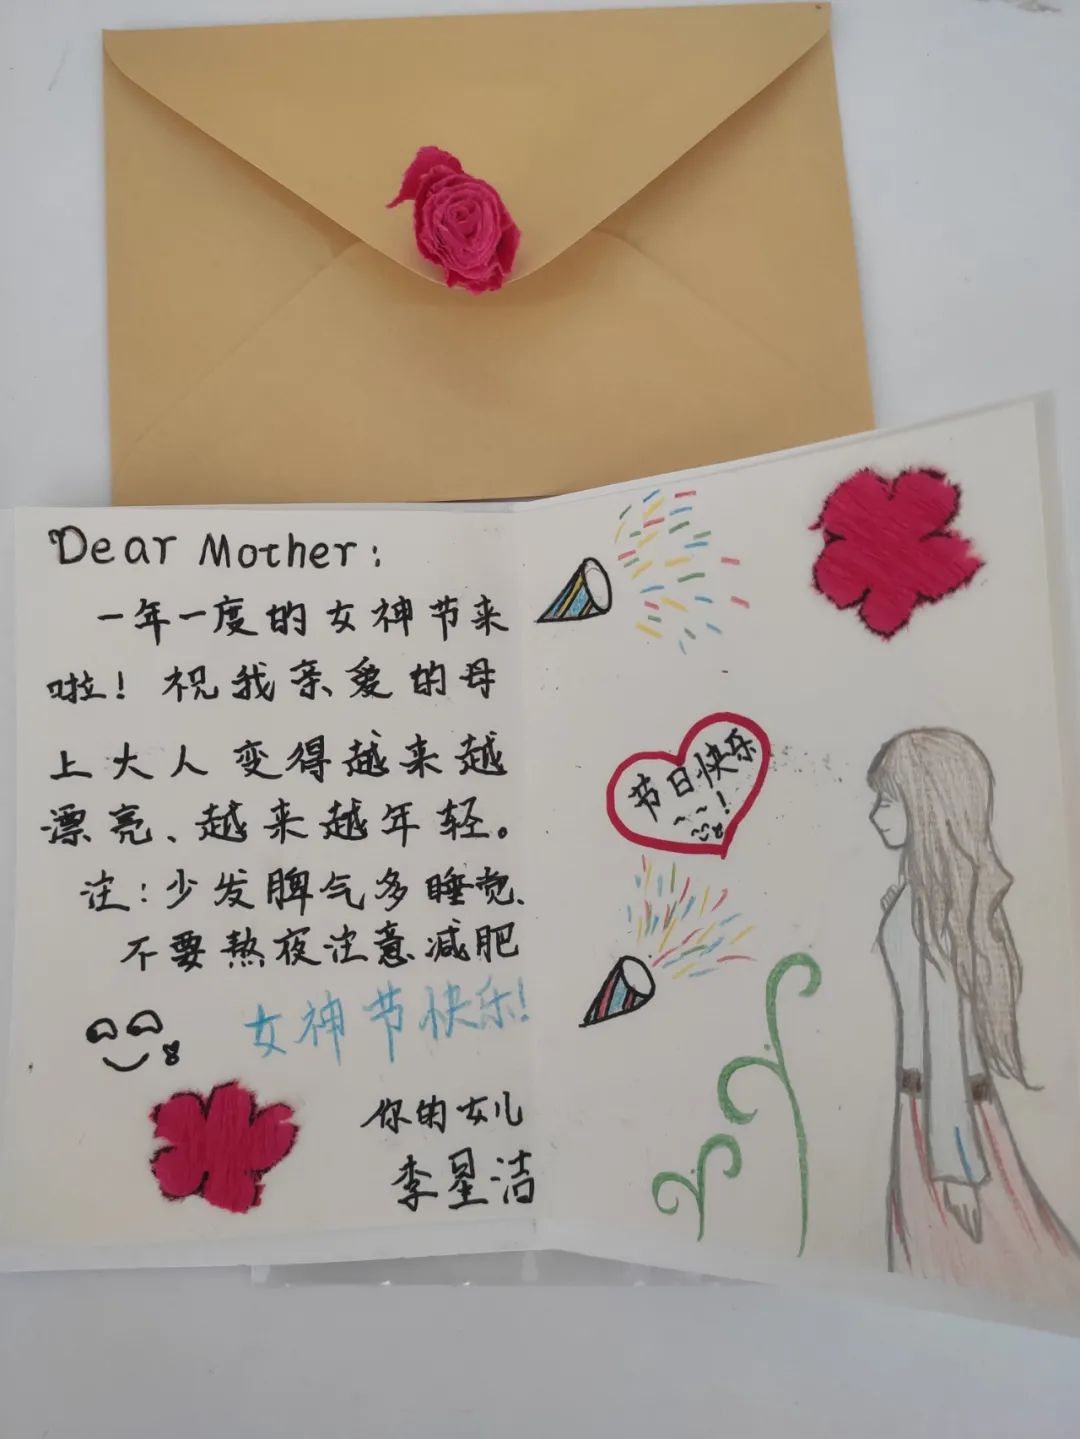 Dear Mother:
一年一度的女神节来
啦!祝我亲爱的母
上大人变得越来越
漂亮、越来越年轻。
注:少发脾气多睡觉、
不要熬夜注意减肥
女神节快乐!
你的女儿
李星洁
节日快乐
~~!